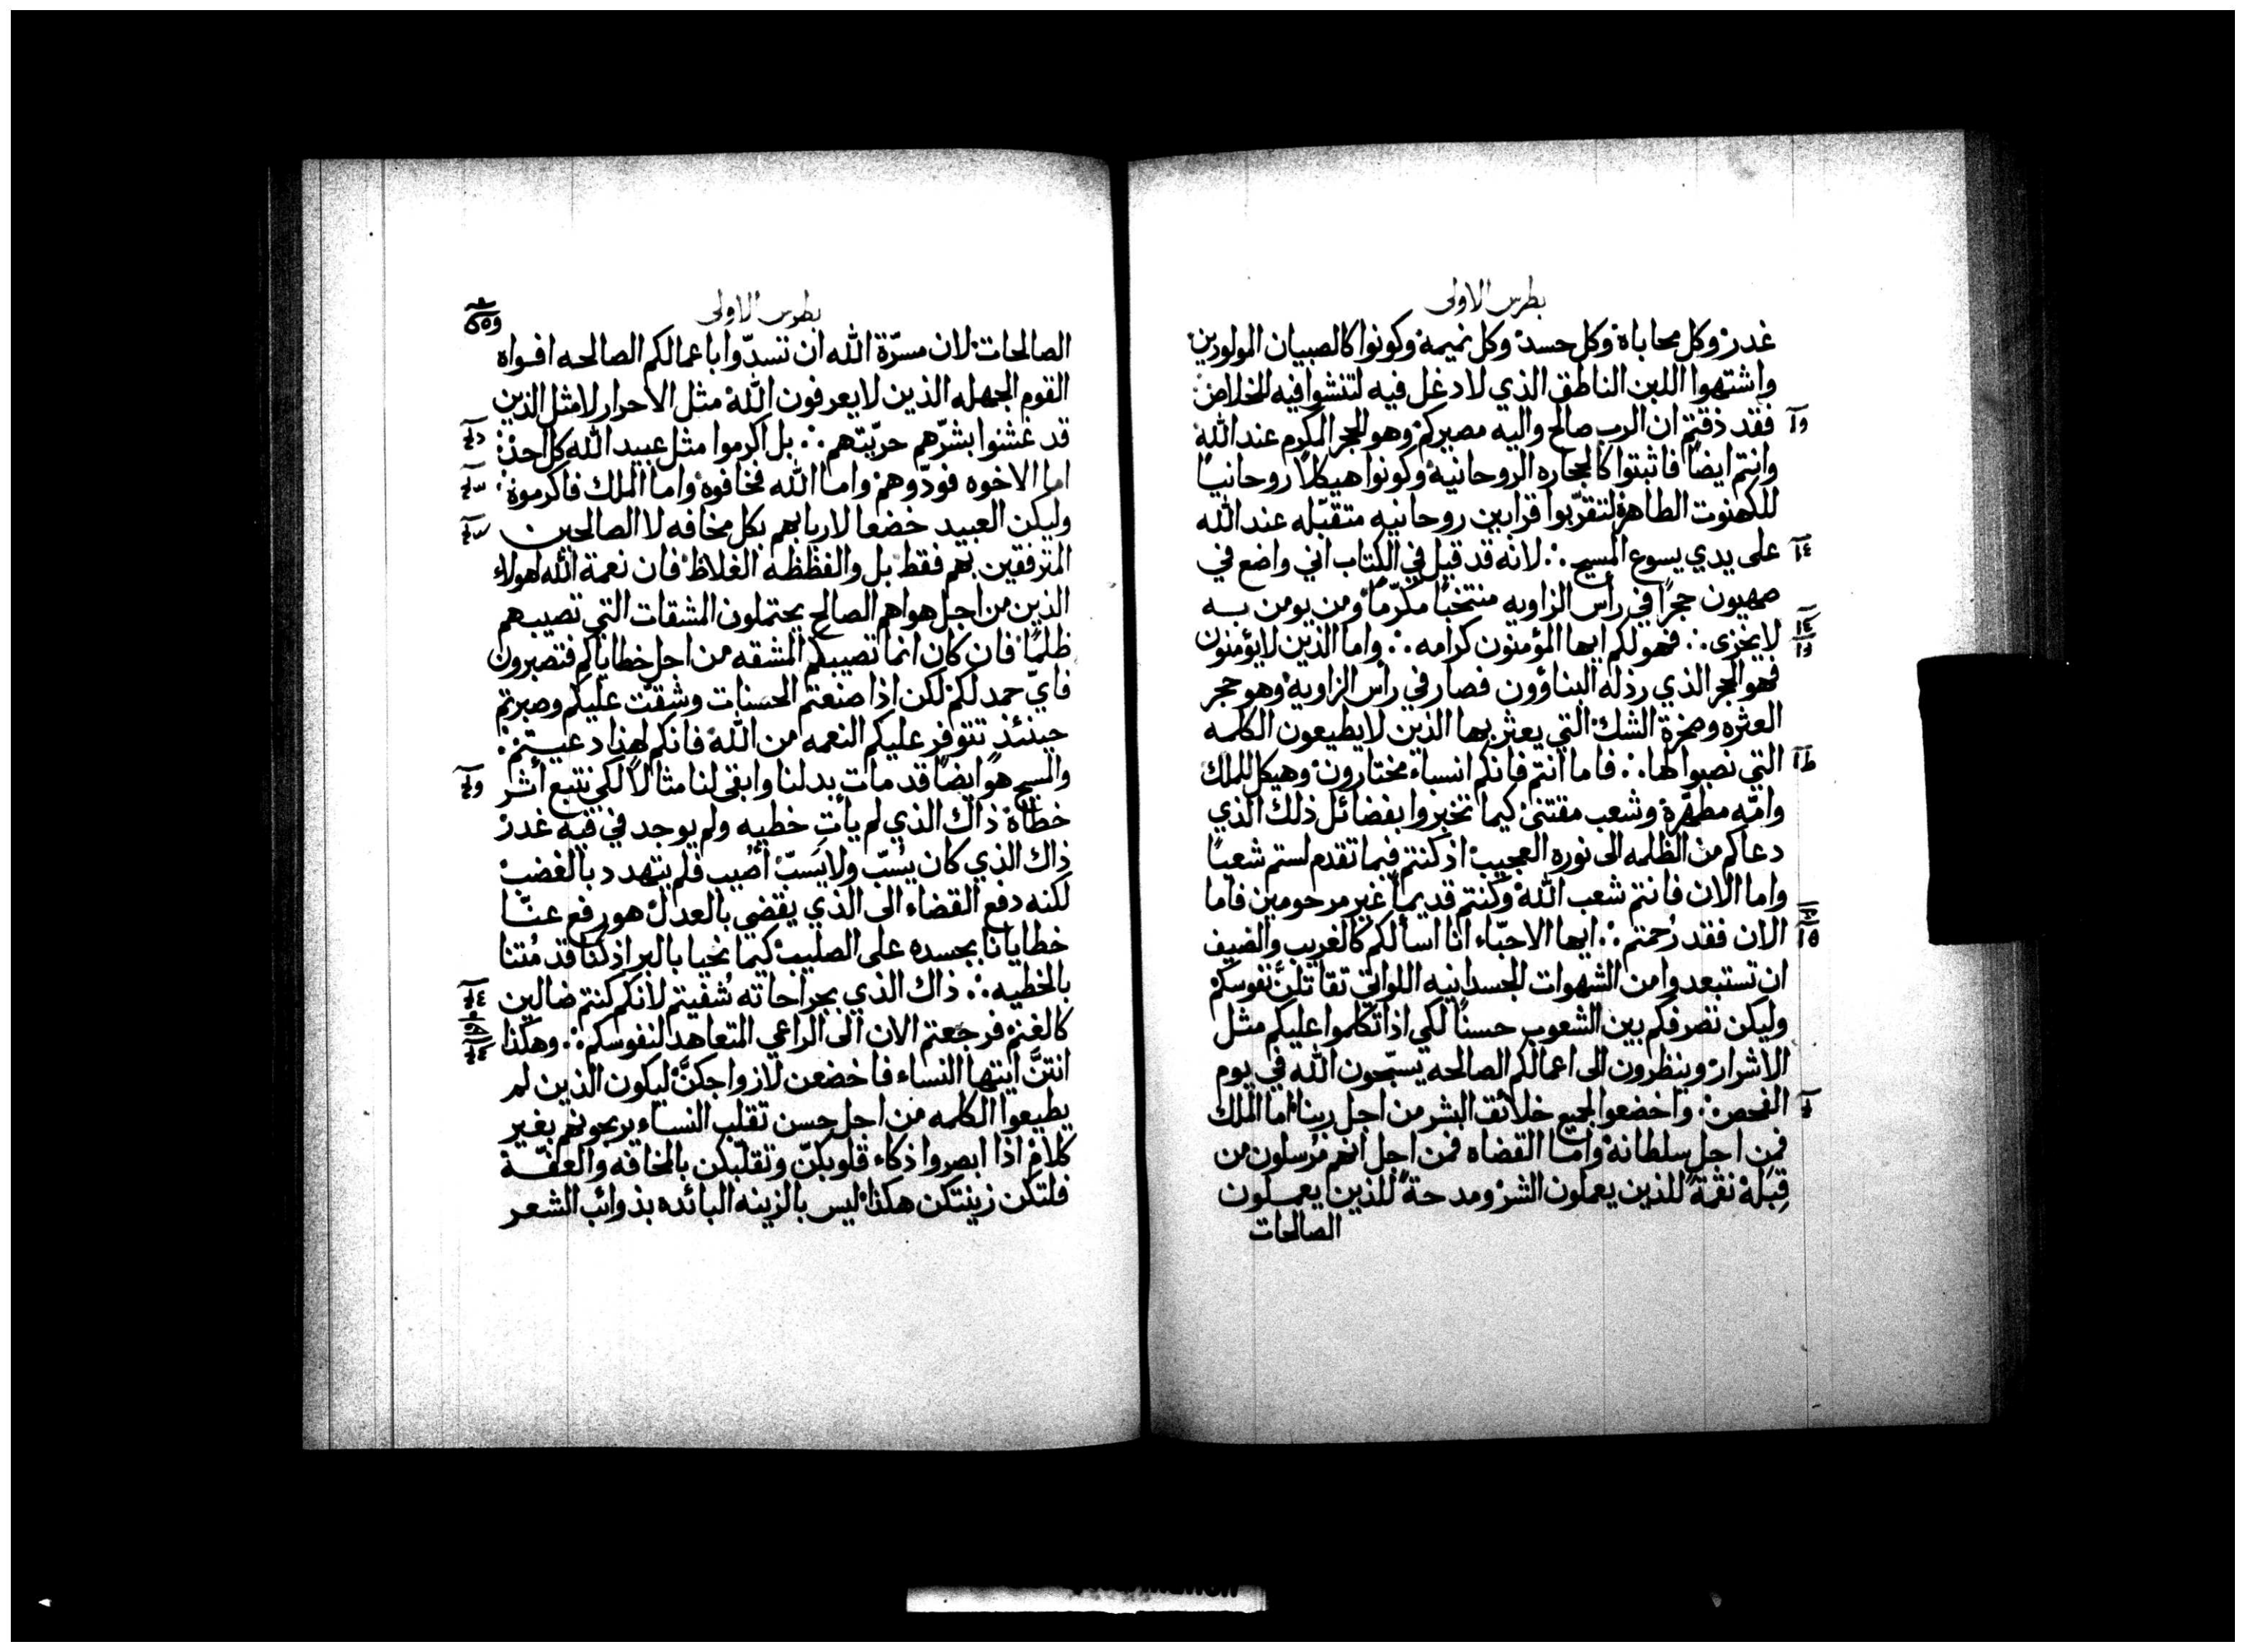 بطرس الاولى
غدر وكل محاباة وكل حسد وكل نميمة وكونوا كالصبيان المولودين
واشتهوا اللبن الناطق الذي لا دغل فيه لتنشوا فيه للخلاص
فقد ذقتم ان الرب صالح واليه مصيركم وهو الحجر المكرم عند الله
وانتم ايضاً فاثبتوا كالحجاره الروحانيه وكونوا هيكلاً روحانيـاً
للكهنوت الطاهرة لتقرّبوا قرابين روحانيه متقبّله عند الله
على يدي يسوع المسيح ؞ لانه قد قيل في الكتاب اني واضع في
صهيون حجراً في رأس الزاويه منتخباً مكرّماً ومن يومن بــه
لا يخزى ؞ فهو لكم ايها المؤمنون كرامه ؞ واما الذين لا يؤمنون
فهو الحجر الذي رذله البناؤون فصار في رأس الزاويه وهو حجر
العثره وصخرة الشك التي يعثر بها الذين لا يطيعون الكلمه
التي نصبوا لها ؞ فاما انتم فانكم انساء مختارون وهيكل للملك
وامّه مطهّرة وشعب مقتنى كيما تخبروا بفضائل ذلك الذي
دعاكم من الظلمه الى نوره العجيب اذ كنتم فيما تقدم لستم شعباً
واما الان فانتم شعب الله وكنتم قديماً غير مرحومين فاما
الان فقد رُحمتم ؞ ايها الاحبّاء انا اسألكم كالغريب والضيف
ان تستبعدوا من الشهوات الجسدانيه اللواتي تقاتلنّ نفوسكم
وليكن تصرفكم بين الشعوب حسناً لكي اذا تكلموا عليكم مثل
الاشرار وينظرون الى اعمالكم الصالحه يسبّحون الله في يوم
الفحص ؞ واخضعوا لجميع خلائق البشر من اجل ربنا اما الملك
فمن اجل سلطانه واما القضاه فمن اجل انهم مُرسلون من
قِبَله نقمةً للذين يعملون الشر ومدحةً للذين يعملون
الصالحات
بطرس الاولى
الصالحات لان مسرّة الله ان تسدّوا باعمالكم الصالحه افواه
القوم الجهله الذين لا يعرفون الله مثل الاحرار لا مثل الذين
قد غشنوا بشرّهم حريّتهم ؞ بل اكرموا مثل عبيد الله كل احد
اما الاخوه فودّوهم واما الله فخافوه واما الملك فاكرموه
وليكن العبيد خضعا لاربابهم بكل مخافه لا الصالحين
المترفقين بهم فقط بل والفظظه الغلاظ فان نعمة الله لهولاء
الذين من اجل هواهم الصالح يحتملون المشقات التي تصيبهم
ظلماً فان كان انما تصيبكم المشقه من اجل خطاياكم فتصبرون
فايّ حمد لكم لكن اذا صنعتم الحسنات وشقّت عليكم وصبرتم
حينئذٍ تتوفر عليكم النعمه من الله فانكم لهذا دعيتم
والمسيح هو ايضاً قد مات بدلنا وابقى لنا مثالاً لكي نتبع أثر
خطاه ذاك الذي لم يأتِ خطيه ولم يوجد في فيه غدر
ذاك الذي كان يُسَبّ ولا يَسبّ أُصيب فلم يتهدد بالغضب
لكنه دفع القضاء الى الذي يقضي بالعدل هو رفع عنّا
خطايانا بجسده على الصليب كيما نحيا بالبر اذ كنا قد مُتنا
بالخطيه ؞ ذاك الذي بجراحاته شُفيتم لانكم كنتم ضالين
كالغنم فرجعتم الان الى الراعي المتعاهد لنفوسكم ؞ وهكذا
انتنّ ايتها النساء فاخضعن لازواجكنّ ليكون الذين لم
يطيعوا الكلمه من اجل حسن تقلب النساء يربحونهم بغير
كلام اذا ابصروا ذكاء قلوبكنّ وتقلّبكن بالمخافه والعفّة
فلتكن زينتكن هكذا ليس بالزينه البائده بذوائب الشعر